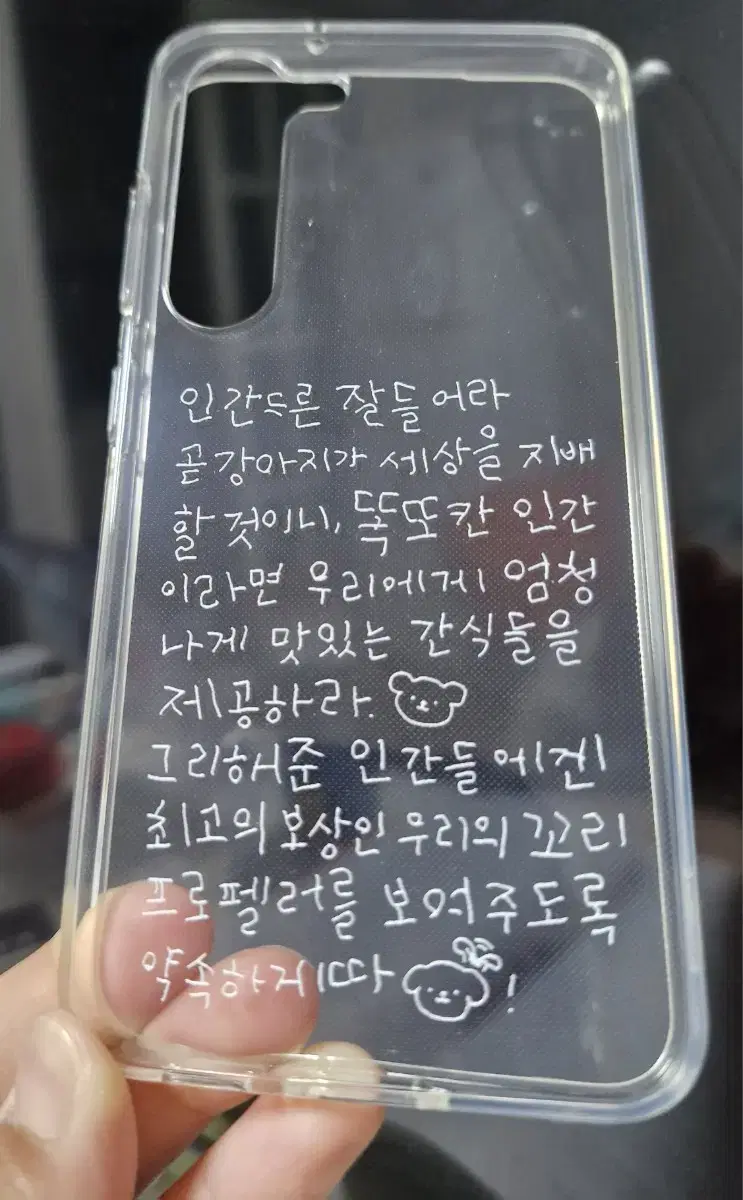 인간드른 잘들어라
곧 강아지가 세상을 지배
할 것이니, 똑또칸 인간
이라면 우리에게 엄청
나게 맛있는 간식들을
제공하라.
그리해준 인간들에겐
최고의 보상인 우리의 꼬리
프로펠러를 보여주도록
약속하게따!